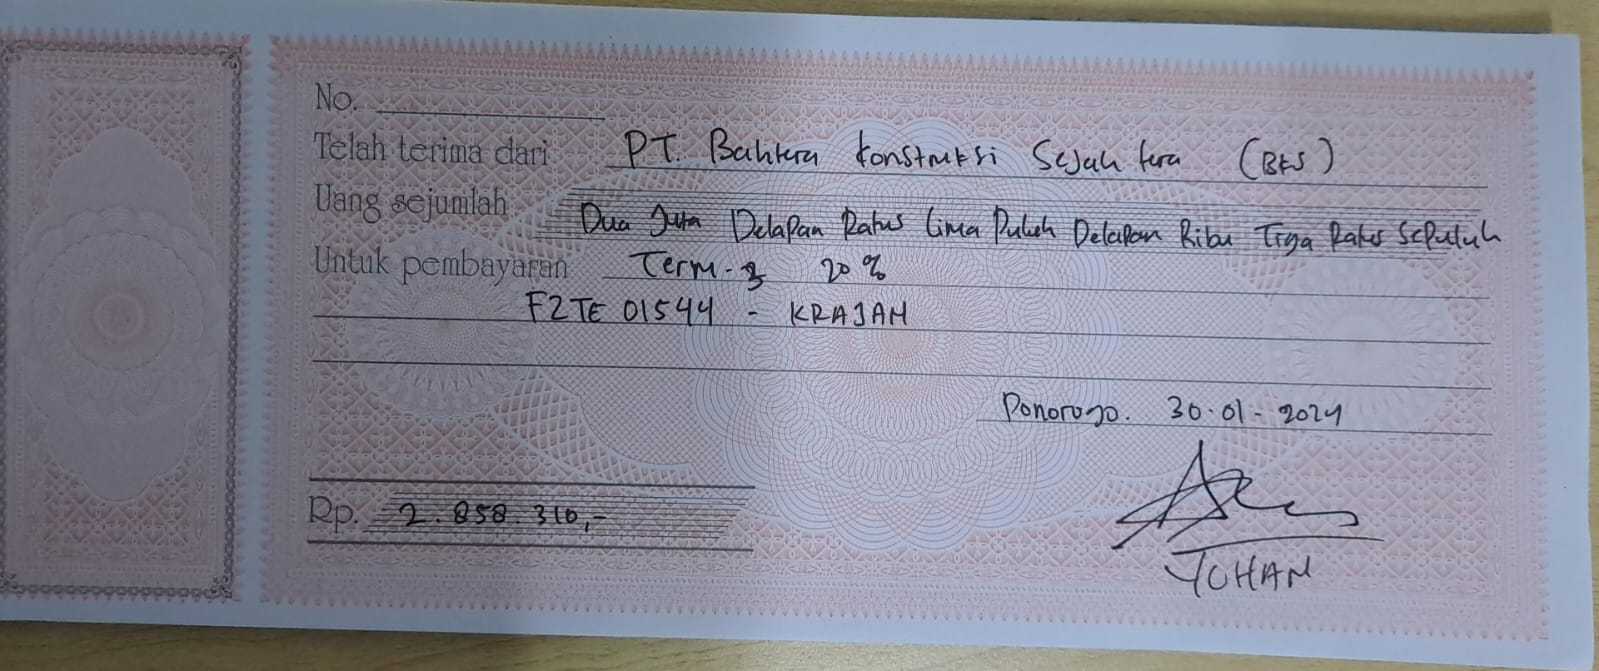 No.
Telah terima dari PT. Bahtera Konstruksi Sejahtera (BKS)
Uang sejumlah Dua Juta Delapan Ratus Lima Puluh Delapan Ribu Tiga Ratus Sepuluh
Untuk pembayaran Term-3 20%
F2TE 01544 - KRAJAN
Ponorogo. 30-01-2024
Rp. 2.858.310,-
YOHAN